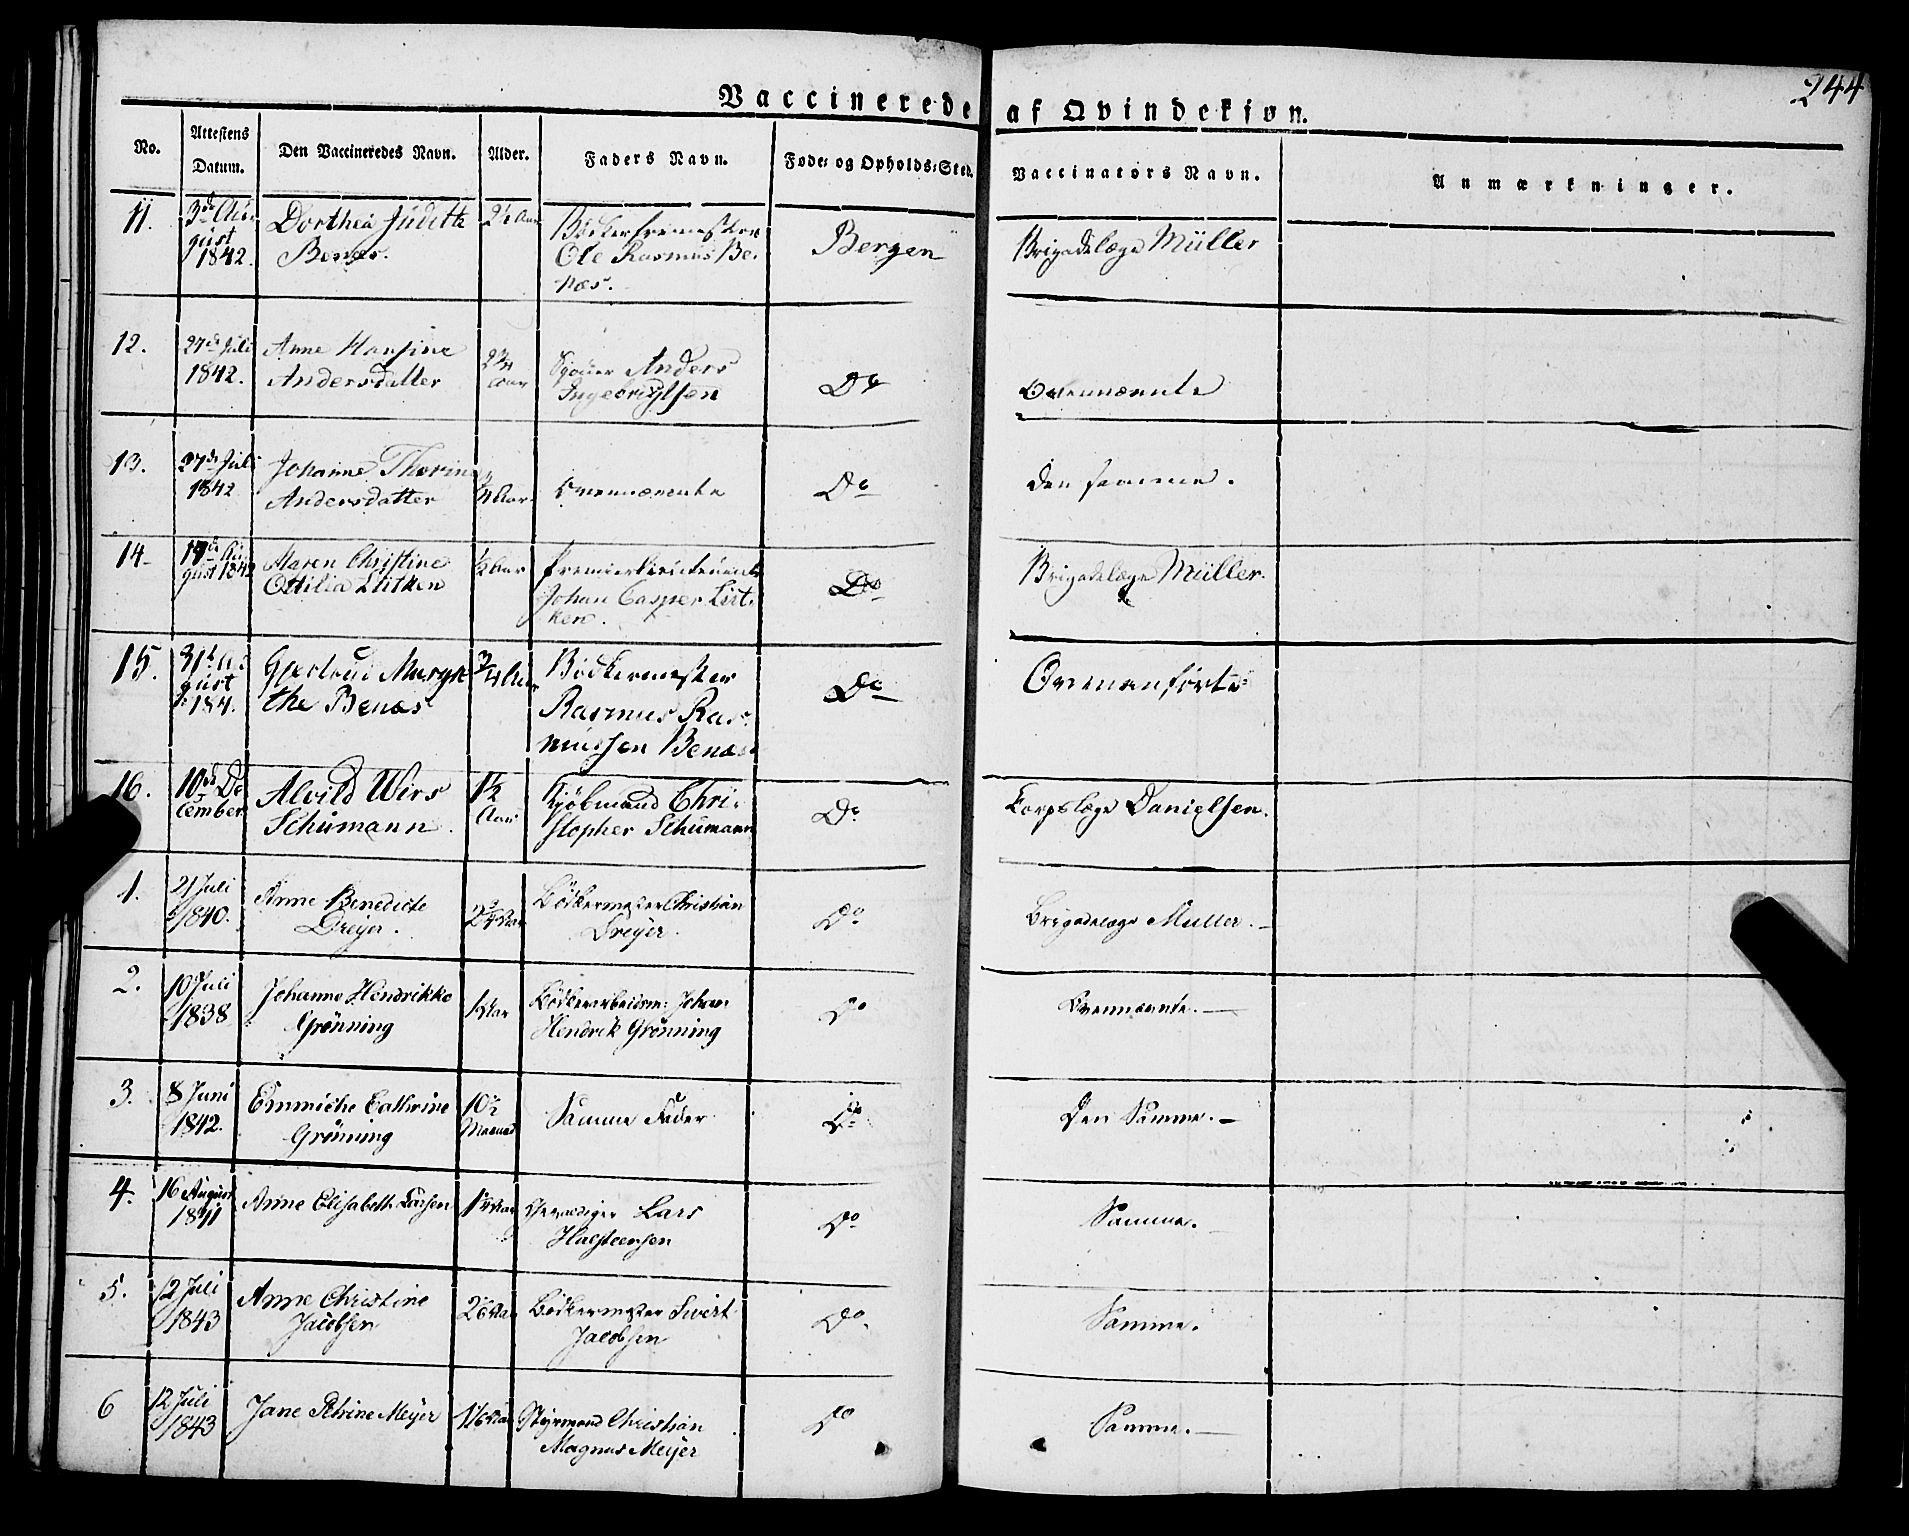 244
Vaccinerede af Qvindekjøn.
No. Attestens Datum. Den Vaccineredes Navn. Alder. Faders Navn. Føde- og Opholds-Sted. Vaccinators Navn. Anmærkninger.
11. 3de Au- Dorthea Judithe 2½ Aar Bödker
gust Benæs. Ole Rasmus Be- Bergen Brigadelæge Müller
1842. næs.
12. 27de Juli Anne Hansine Anders
1842. Andersdatter Aar Ingebrigtsen Do Ovennævnte
13. 27de Juli Johanne Thorine
1842 Andersdatter Aar Ovennævnte Do den samme.
14. August 1842 Maren Christine ½ Aar Premierlieutenant
Ottilia Lütken Johan Casper Lüt- Do Brigadelæge Müller.
ken.
15. 31te Au- Gjertrud Margre- ¾ Aar Bödkermester
gust the Benæs Rasmus Ras- Do Ovenanførte
184. mussen Benæs
16. 10de De- Alvild Wirs 1½ Kjöbmand Chri-
cember Schumann. Aar stopher Schumann Do Corpslæge Danielsen.
1. 21 Juli Anne Benedicte 2¾ Aar Bödkermester Christian
1840. Dreyer. Dreyer. Do Brigadelæge Müller.
2. 10 Juli Johanne Hendrikke 1 Aar Bödkerarbeidsm: Johan
1838 Grönning Hendrik Grönning Do Ovennævnte.
3. 8 Juni Emmiche Cathrine 10½ Samme Fader Do Den Samme.
1842. Grönning Maaned
4. 16 August Anne Elisabeth Larsen 1¼ Aar Lars
1841 Halsteensen Do Samme.
5. 12 Juli Anne Christine Aar Bödkermester Sivert
1843 Jacobsen Jacobsen Do Samme.
6 12 Juli Jane Petrine Meyer Aar Styrmand Christian
1843 Magnus Meyer Do Samme.